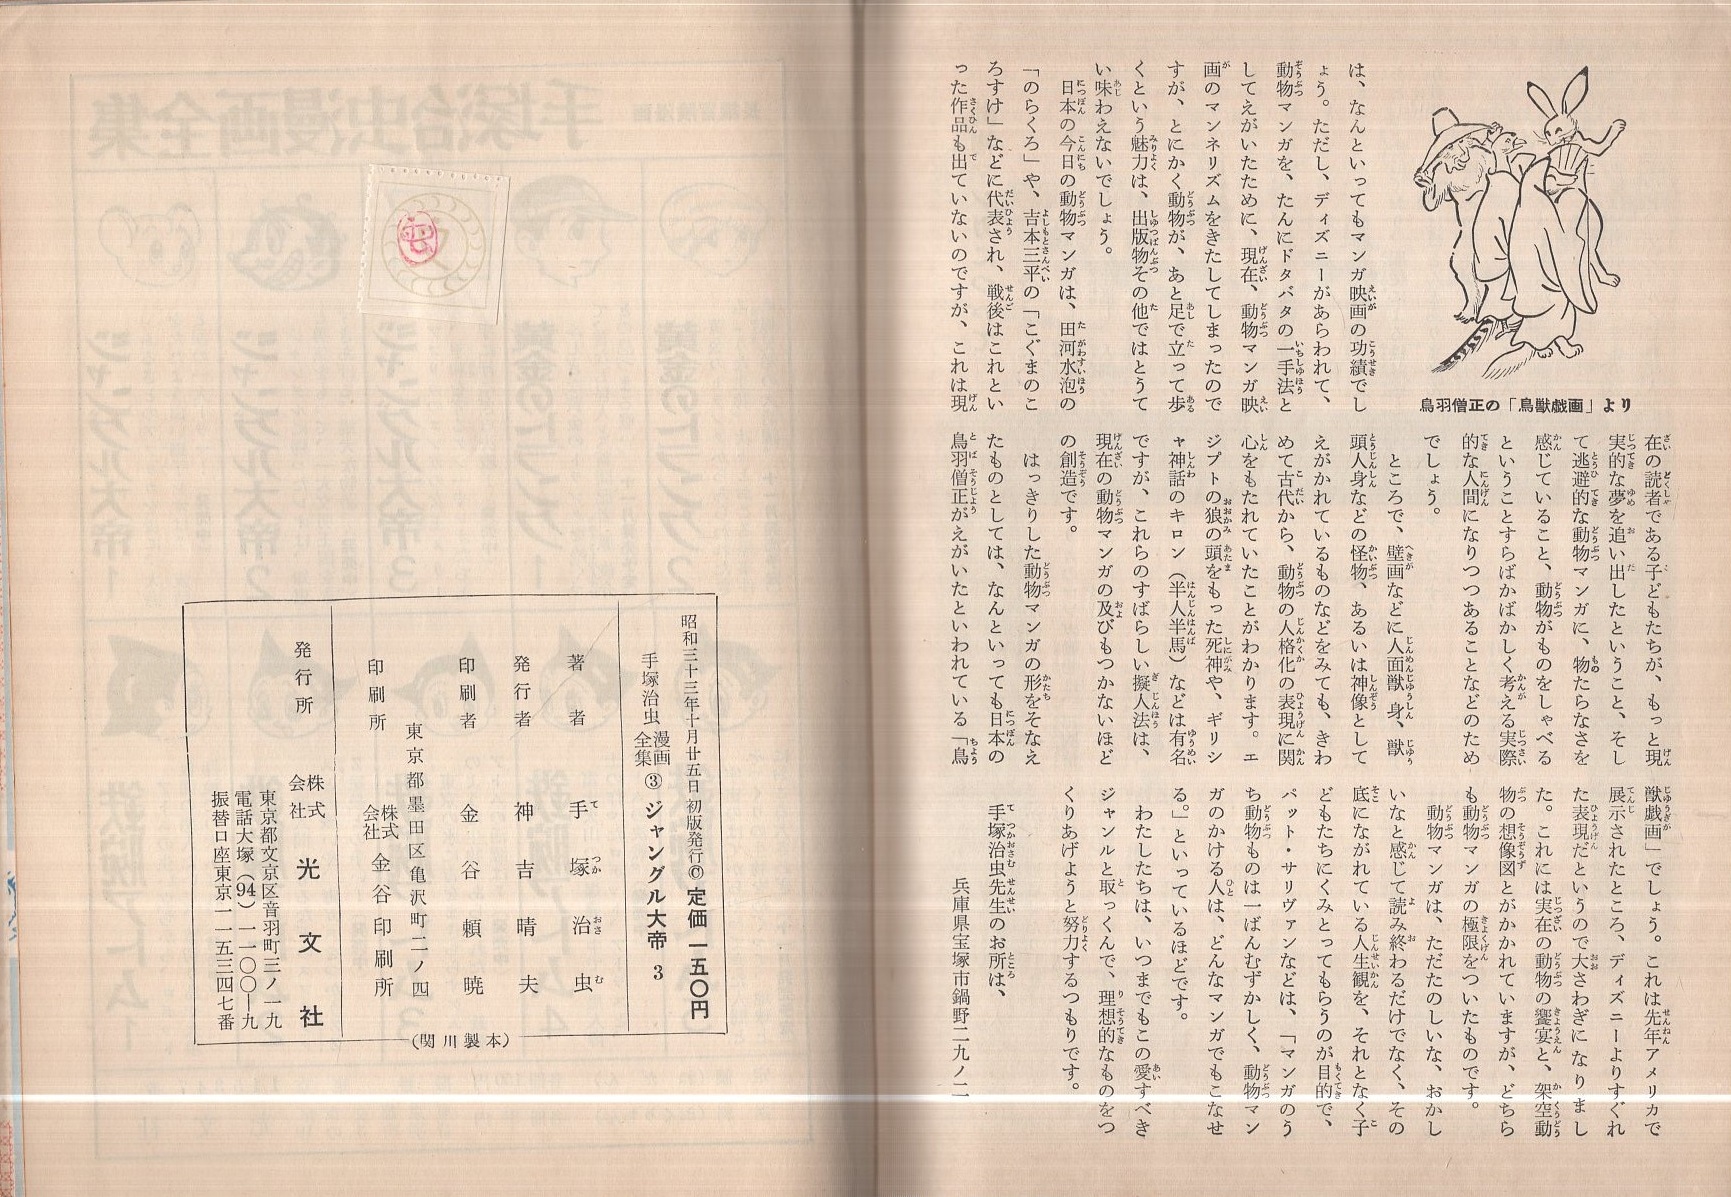 は、なんといってもマンガ映画の功績でし
ょう。ただし、ディズニーがあらわれて、
動物マンガを、たんにドタバタの一手法と
してえがいたために、現在、動物マンガ映
画のマンネリズムをきたしてしまったので
すが、とにかく動物が、あと足で立って歩
くという魅力は、出版物その他ではとうて
い味わえないでしょう。
日本の今日の動物マンガは、田河水泡の
「のらくろ」や、吉本三平の「こぐまのこ
ろすけ」などに代表され、戦後はこれとい
った作品も出ていないのですが、これは現
鳥羽僧正の「鳥獣戯画」より
在の読者である子どもたちが、もっと現
実的な夢を追い出したということ、そし
て逃避的な動物マンガに、物たらなさを
感じていること、動物がものをしゃべる
ということすらばかばかしく考える実際
的な人間になりつつあることなどのため
でしょう。
ところで、壁画などに人面獣身、獣
頭人身などの怪物、あるいは神像として
えがかれているものなどをみても、きわ
めて古代から、動物の人格化の表現に関
心をもたれていたことがわかります。エ
ジプトの狼の頭をもった死神や、ギリシ
ャ神話のキロン（半人半馬）などは有名
ですが、これらのすばらしい擬人法は、
現在の動物マンガの及びもつかないほど
の創造です。
はっきりした動物マンガの形をそなえ
たものとしては、なんといっても日本の
鳥羽僧正がえがいたといわれている「鳥
獣戯画」でしょう。これは先年アメリカで
展示されたところ、ディズニーよりすぐれ
た表現だというので大さわぎになりまし
た。これには実在の動物の饗宴と、架空動
物の想像図とがかかれていますが、どちら
も動物マンガの極限をついたものです。
動物マンガは、ただたのしいな、おかし
いなと感じて読み終わるだけでなく、その
底にながれている人生観を、それとなく子
どもたちにくみとってもらうのが目的で、
パット・サリヴァンなどは、「マンガのう
ち動物ものは一ばんむずかしく、動物マン
ガのかける人は、どんなマンガでもこなせ
る。」といっているほどです。
わたしたちは、いつまでもこの愛すべき
ジャンルと取っくんで、理想的なものをつ
くりあげようと努力するつもりです。
手塚治虫先生のお所は、
兵庫県宝塚市鍋野二九ノ二
昭和三十三年十月廿五日 初版発行 © 定価 一五〇円
手塚治虫漫画全集 ③ ジャングル大帝 3
著者 手塚治虫
発行者 神吉晴夫
印刷者 金谷頼暁
東京都墨田区亀沢町二ノ四
印刷所 株式会社 金谷印刷所
発行所 株式会社 光文社
東京都文京区音羽町三ノ一九
電話大塚（94）一一〇〇—九
振替口座東京一一五三四七番
（関川製本）